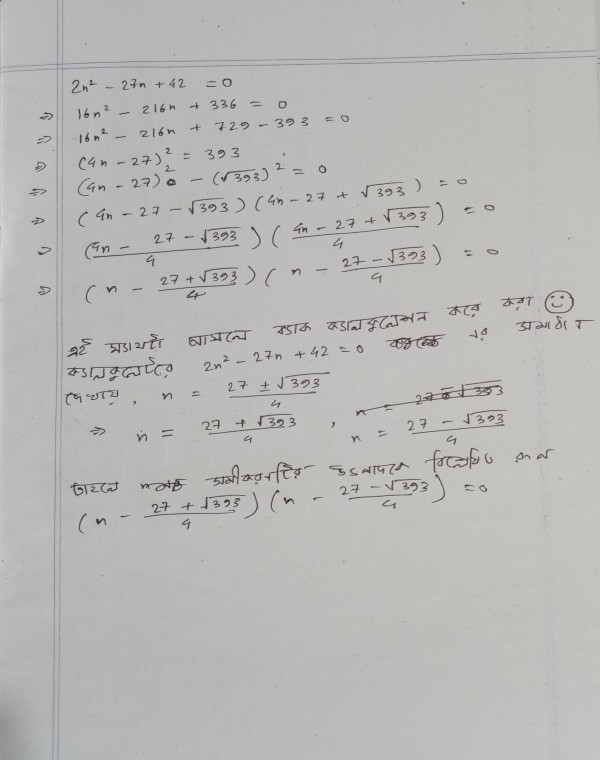 2n² - 27n + 42 = 0
⇒ 16n² - 216n + 336 = 0
⇒ 16n² - 216n + 729 - 393 = 0
⇒ (4n - 27)² = 393
⇒ (4n - 27)² - (√393)² = 0
⇒ (4n - 27 - √393) (4n - 27 + √393) = 0
⇒ (4n - 27 - √393 / 4) (4n - 27 + √393 / 4) = 0
⇒ (n - 27 + √393 / 4) (n - 27 - √393 / 4) = 0
এই অংঙ্কটা আসলে ব্যাক ক্যালকুলেশন করে করা ☺
ক্যালকুলেটরে 2n² - 27n + 42 = 0 এর সমাধান
দেখায়, n = 27 ± √393 / 4
⇒ n = 27 + √393 / 4 , n = 27 - √393 / 4
তাহলে সমীকরণটির উৎপাদকে বিশ্লেষিত রূপ
(n - 27 + √393 / 4) (n - 27 - √393 / 4) = 0